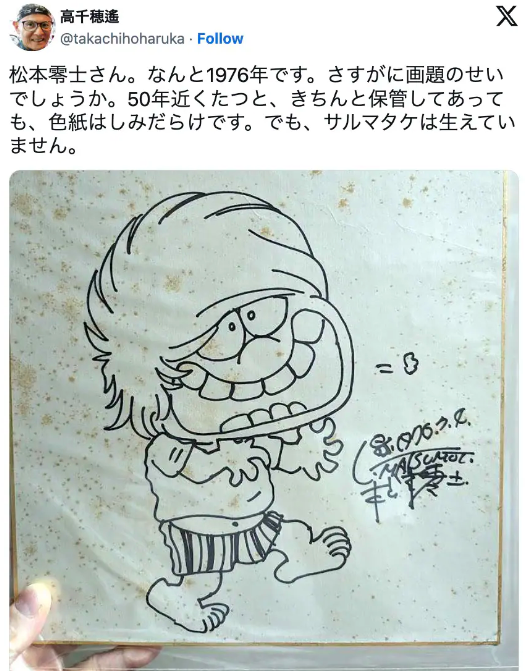 高千穂遙
@takachihoharuka · Follow
松本零士さん。なんと1976年です。さすがに画題のせい
でしょうか。50年近くたつと、きちんと保管してあって
も、色紙はしみだらけです。でも、サルマタケは生えてい
ません。
MATSUMOTO.